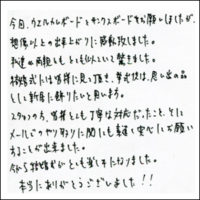 今回、ウエルカムボードとサンクスボードをお願いしましたが、
想像以上の出来上がりに感動致しました。
私達の両親もとても似ていて驚きました。
結婚式では皆様に見て頂き、挙式後は、思い出の品
として新居に飾りたいと思います。
スタッフの方、皆様とても丁寧な対応だったこと、そして
メールでのやり取りに関しても素早く安心してお願い
することが出来ました。
今から結婚式がとても楽しみになりました。
本当にありがとうございました!!